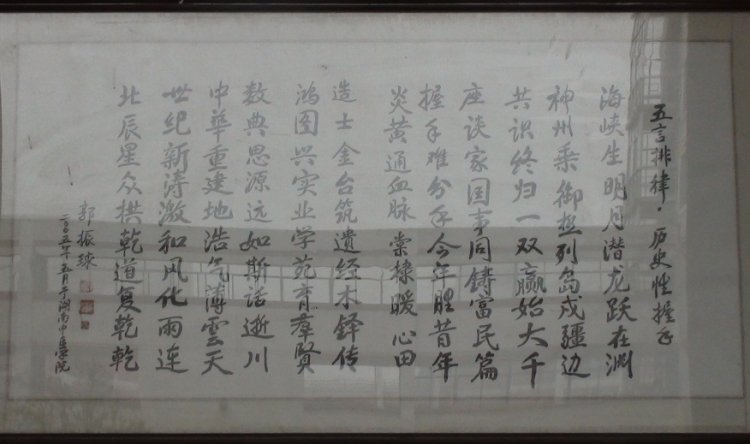 五言排律·历史性握手
海峡生明月潜龙跃在渊
神州乘御极列岛戍疆边
共识终归一双赢始大千
座谈家国事同铸富民篇
握手难分手今年胜昔年
炎黄通血脉棠棣暖心田
造士金台筑遗经木铎传
鸿图兴实业学苑育群贤
数典思源远如斯话逝川
中华重建地浩气薄云天
世纪新涛激和风化雨连
北辰星众拱乾道复乾乾
郭振球
二〇〇五年五月于湖南中医学院